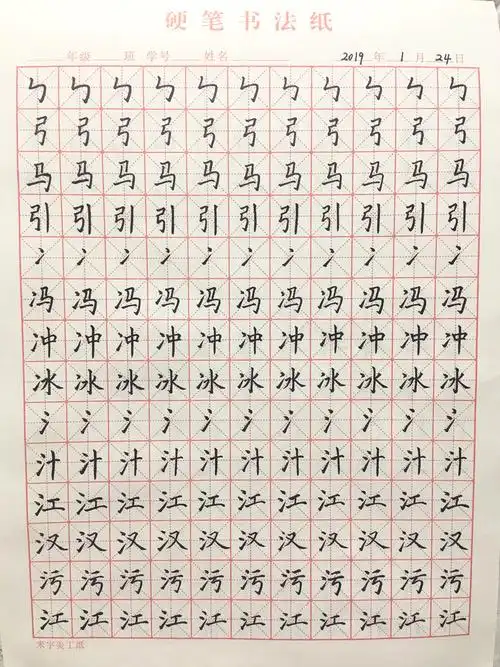 硬笔书法纸
年级 班 学号 姓名 2019 年 1 月 24 日
㇉ ㇉ ㇉ ㇉ ㇉ ㇉ ㇉ ㇉ ㇉ ㇉ ㇉
弓 弓 弓 弓 弓 弓 弓 弓 弓 弓 弓
马 马 马 马 马 马 马 马 马 马 马
引 引 引 引 引 引 引 引 引 引 引
冫 冫 冫 冫 冫 冫 冫 冫 冫 冫 冫
冯 冯 冯 冯 冯 冯 冯 冯 冯 冯 冯
冲 冲 冲 冲 冲 冲 冲 冲 冲 冲 冲
冰 冰 冰 冰 冰 冰 冰 冰 冰 冰 冰
氵 氵 氵 氵 氵 氵 氵 氵 氵 氵 氵
汁 汁 汁 汁 汁 汁 汁 汁 汁 汁 汁
江 江 江 江 江 江 江 江 江 江 江
汉 汉 汉 汉 汉 汉 汉 汉 汉 汉 汉
污 污 污 污 污 污 污 污 污 污 污
江 江 江 江 江 江 江 江 江 江 江
米字美工纸